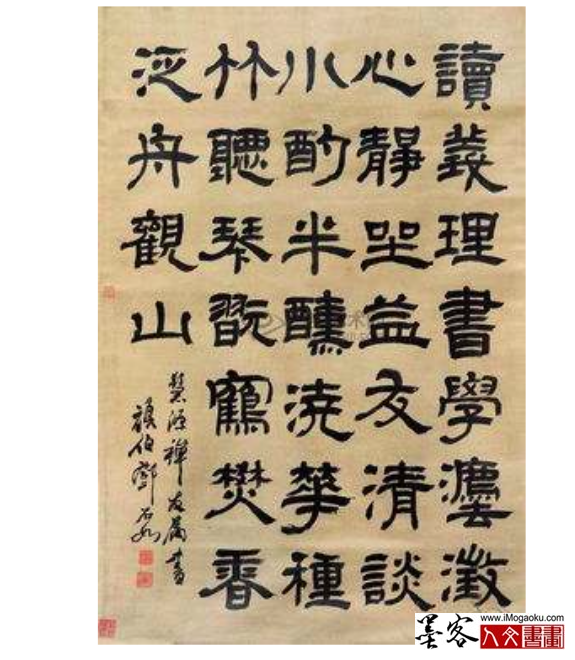 讀義理書學灋澂
心靜坐益友清談
小酌半醺澆華種
竹聽琴翫鶴焚香
泛舟觀山
禪友屬書
頑伯鄧石如
墨客
www.iMogaoku.com
人文書畫